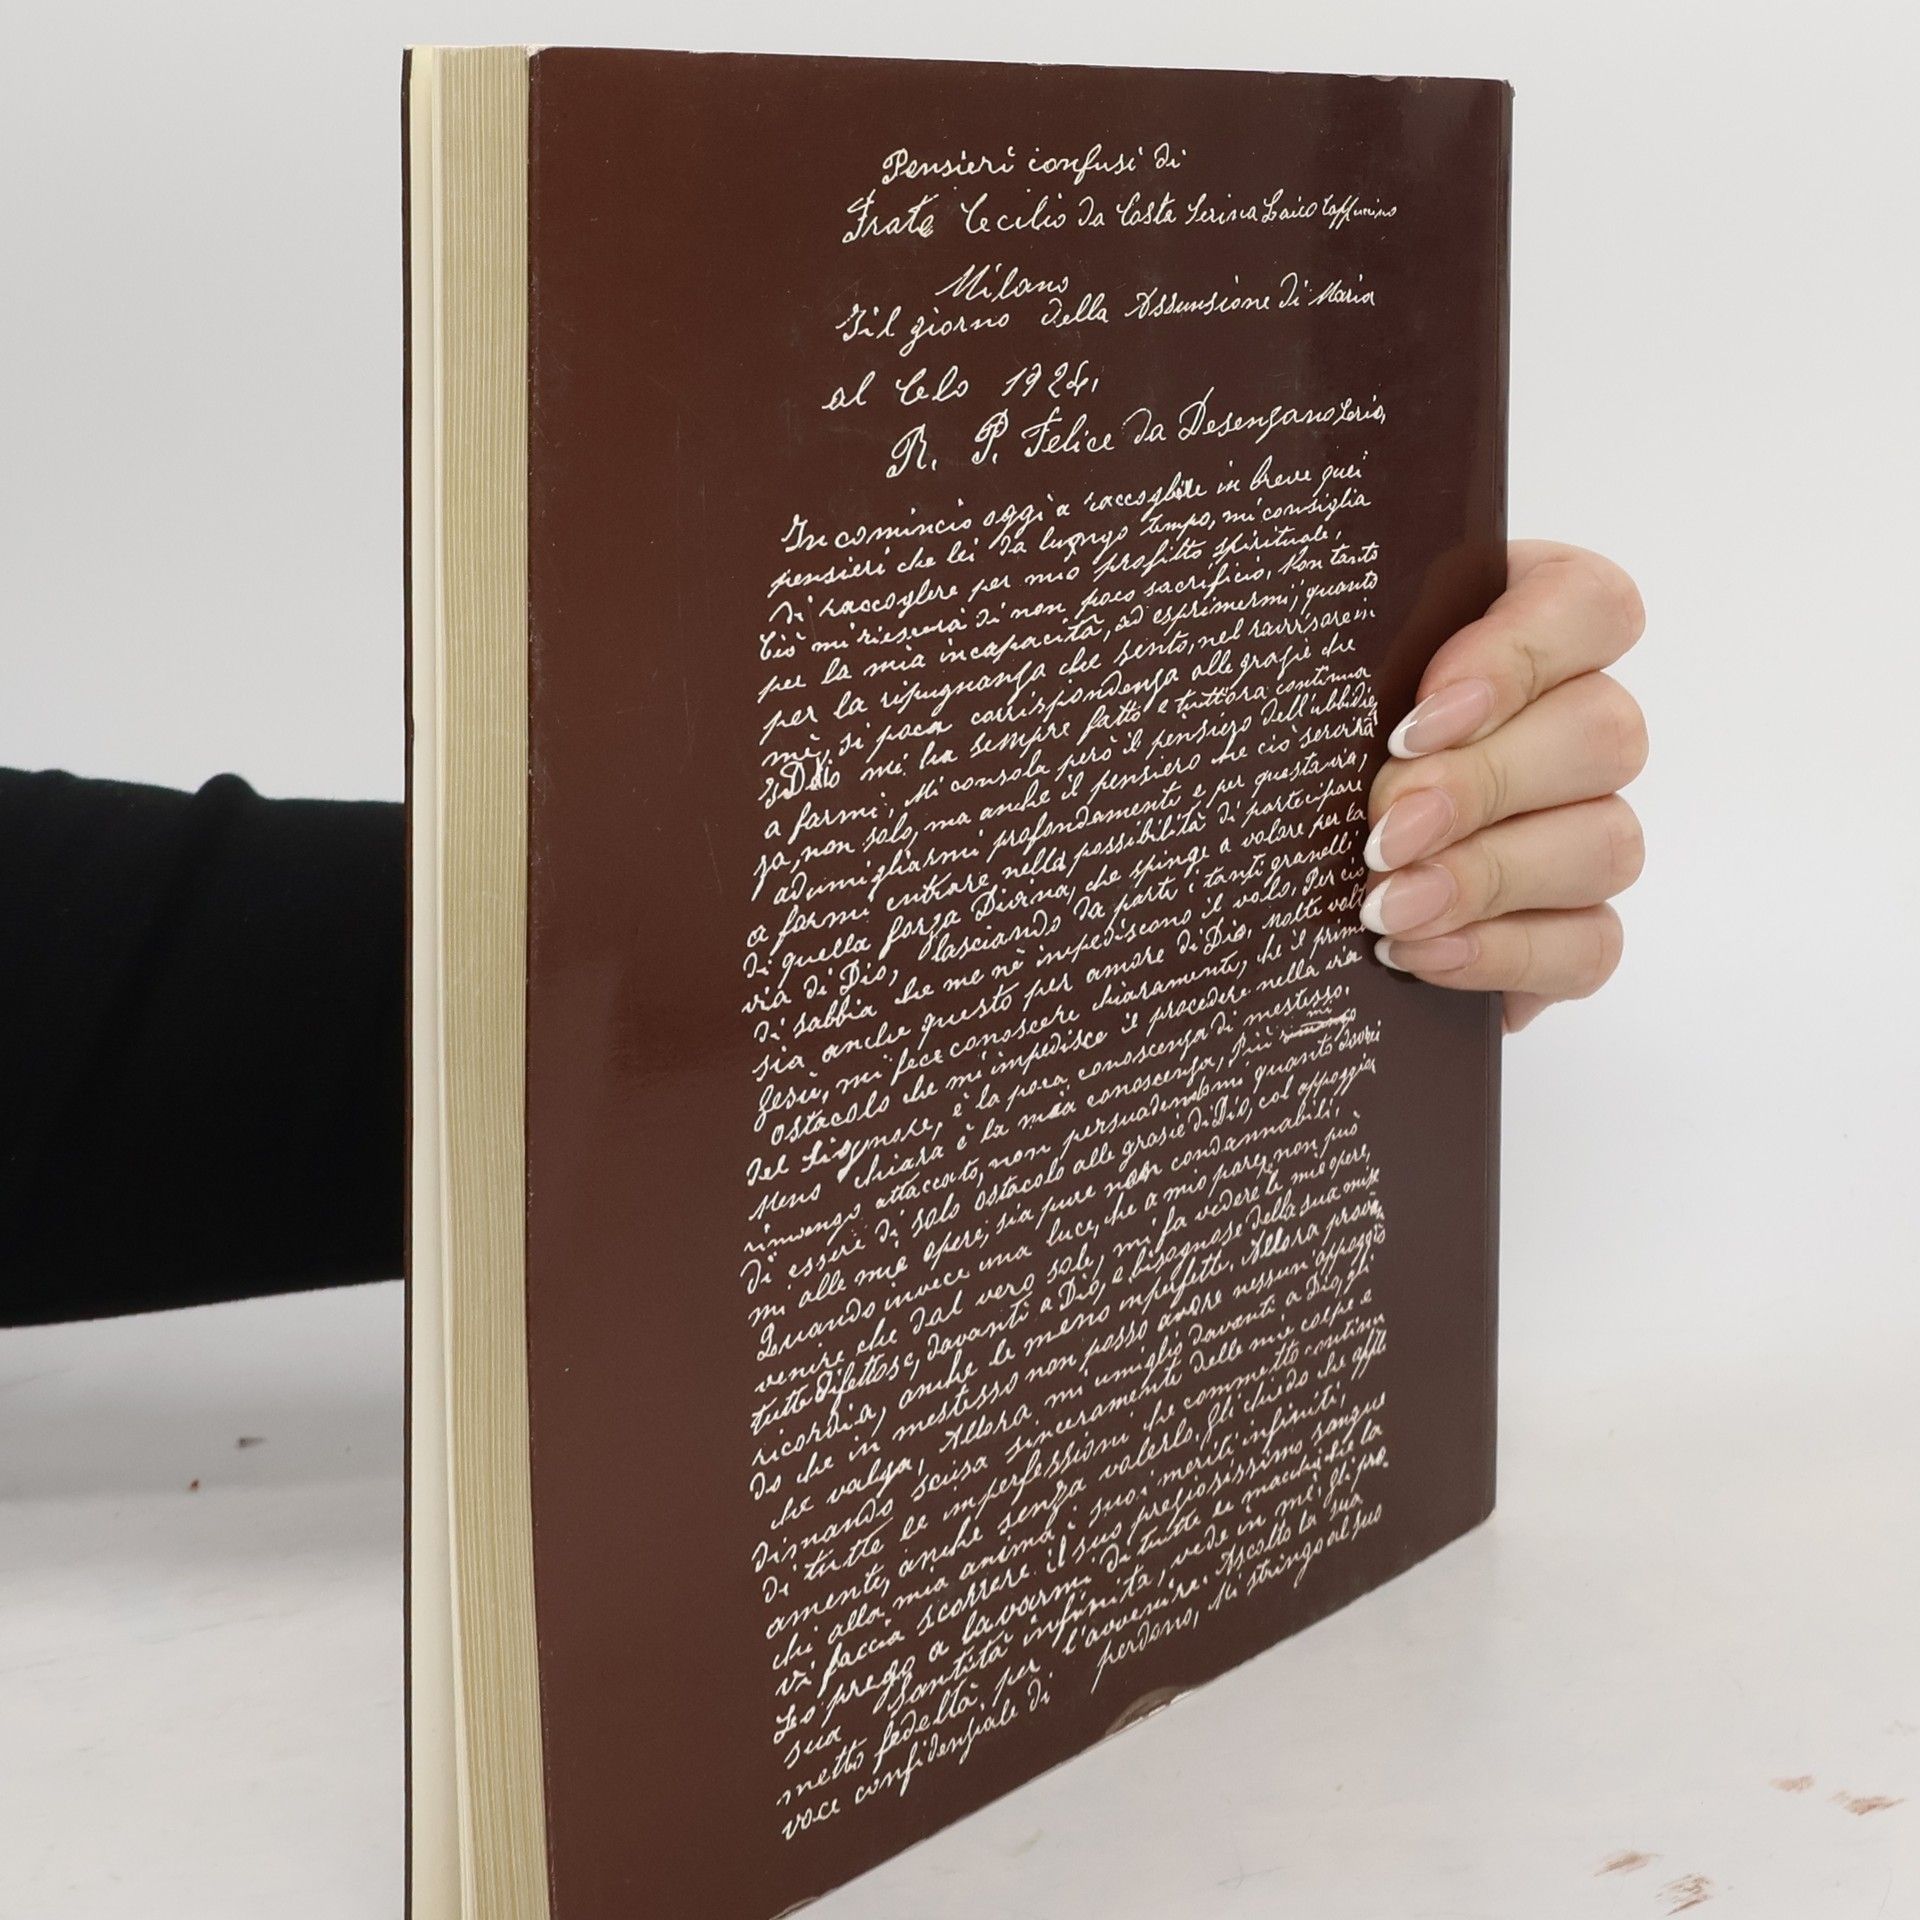 Pensieri confusi di
Frate Cecilio da Costa Serina Laico Capuccino
Milano
Il giorno della Assunsione di Maria
al Celo 1924,
R. P. Felice da Desenzano Serio,
Incomincio oggi a raccogliere in breve quei
pensieri che lei da luongo tempo, mi consiglia
di raccoglere per mio profitto spirituale,
Ciò mi riescerà di non poco sacrificio, Non tanto
per la mia incapacità, ad esprimermi; quanto
per la ripugnanza che sento, nel ravvisare in
mè, si poca corrispondenza alle grazie che
Dio mi ha sempre fatto e tutt'ora continua
a farmi, Mi consola però il pensiero dell'ubbidien
za, non solo, ma anche il pensiero che ciò servirà
ad umigliarmi profondamente e per questa via,
a farmi entrare nella possibilità di partecipare
di quella forza Divina, che spinge a volare per la
via di Dio, lasciando da parte i tanti granelli
di sabbia che me nè impediscono il volo, Per ciò
sia anche questo per amore di Dio, Molte volte
Gesù, mi fece conoscere chiaramente, che il primo
ostacolo che mi impedisce il procedere nella via
del Signore, è la poca conoscenza di mestesso.
Meno chiara è la mia conoscenza, Più mi
rimvengo attaccato, non persuadendomi quanto dovrei
di essere di solo ostacolo alle grasie di Dio, col appoggiar
mi alle mie opere, sia pure non condannabili,
Quando invece una luce, che a mio pare, non può
venire che dal vero sole, mi fa vedere le mie opere,
tutte difettose, davanti a Dio, e bisognose della sua mise
ricordia, anche le meno imperfette. Allora provan
do che in mestesso non posso avere nessun'appoggio
che valga, Allora mi umiglio davanti a Dio, gli
dimando scusa sinceramente delle mie colpe e
di tutte le imperfessioni che commetto continu
amente, anche senza volerlo. Gli chiedo che appli
chi alla mia anima i suoi meriti infiniti,
vi faccia scorrere il suo pregiosissimo sangue
Lo prego a lavarmi di tutte le macchie che la
sua Santità infinita, vede in me, gli pro-
metto fedeltà, per l'avvenire. Ascolto la sua
voce confidenziale di perdono, Mi stringo al suo